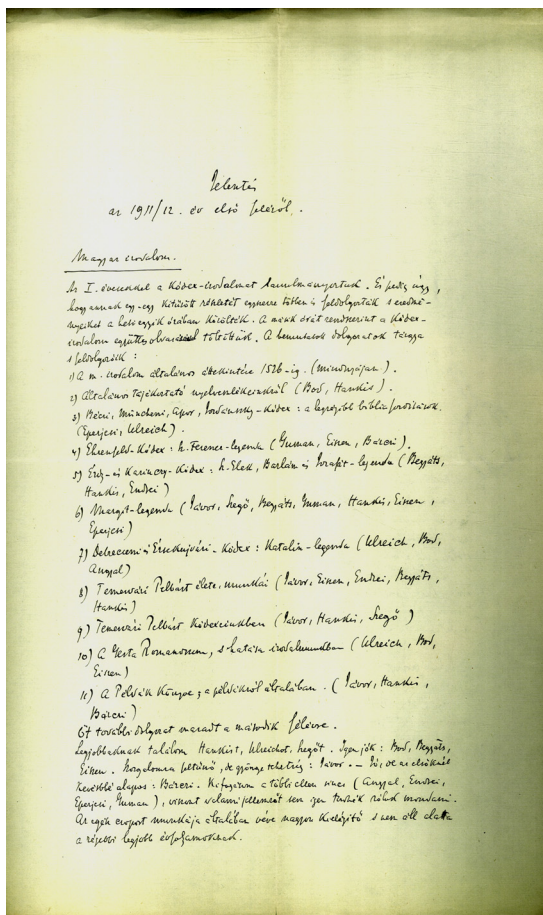 Jelentés
az 1911/12. év első feléről.
Magyar irodalom.
Az I. évesekkel a Kódex-irodalmat tanulmányoztuk. És pedig úgy,
hogy annak egy-egy kitűnőbb részletét egyszerre többen is feldolgozták s eredmé-
nyeiket a heti egyik órában közölték. A másik órát rendszerint a Kódex-
irodalom együttes olvasásával töltöttük. A bemutatott dolgozatok tárgya
s feldolgozóik:
1) A m. irodalom általános áttekintése 1526-ig. (mindnyájan).
2) Általános tájékoztató nyelvemlékeinkről (Bod, Hankis).
3) Bécsi, Müncheni, Apor, Jordánszky-Kódex: a legrégibb bibliafordítások.
(Eperjesi, Ulreich).
4) Ehrenfeld-Kódex: Sz. Ferenc-legenda (Guman, Eisen, Bárczi).
5) Érdy- és Kazinczy-Kódex: Sz. Elek, Barlám és Jozafát-legenda (Begyáts,
Hankis, Endrei)
6) Margit-legenda (Jávor, Szegő, Begyáts, Guman, Hankis, Eisen,
Eperjesi)
7) Debreceni s Érsekujvári-Kódex: Katalin-legenda (Ulreich, Bod,
Angyal)
8) Temesvári Pelbárt élete, munkái (Jávor, Eisen, Endrei, Begyáts,
Hankis)
9) Temesvári Pelbárt Kódexeinkben (Jávor, Hankis, Szegő)
10) A Gesta Romanorum, s hatása irodalmunkban (Ulreich, Bod,
Eisen)
11) A Példák Könyve; a példákról általában. (Jávor, Hankis,
Bárczi)
Öt további dolgozat maradt a második félévre.
Legjobbaknak találom Hankist, Ulreichot, Szegőt. Igen jók: Bod, Begyáts,
Eisen. Szorgalomra feltűnő, de gyönge tehetség: Jávor. – Jó, de az elsőknél
kevésbbé alapos: Bárczi. Kifogásom a többi ellen sincs (Angyal, Endrei,
Eperjesi, Guman), viszont valami jellemzőt sem igen tudnék róluk mondani.
Az egész csoport munkája általában véve nagyon kielégítő s nem áll alatta
a régebbi legjobb évfolyamoknak.